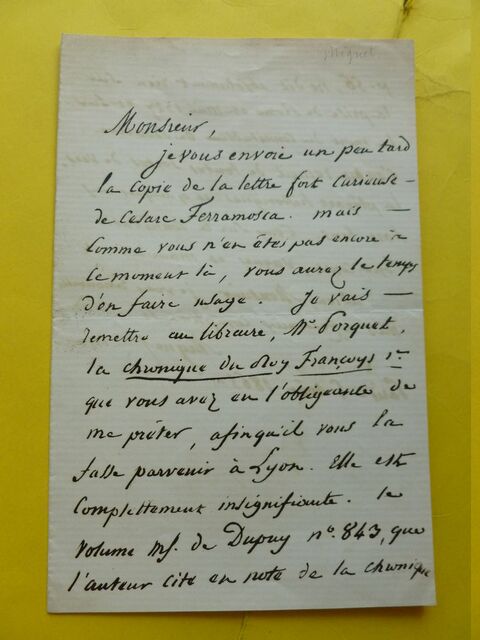 Mignet
Monsieur,
je vous envoie un peu tard
la copie de la lettre fort curieuse
de Cesare Ferramosca. mais
comme vous n'en êtes pas encore à
ce moment là, vous aurez le temps
d'en faire usage. Je vais
remettre au libraire, Mr Porquet,
la chronique du Roy Françoys 1er
que vous avez eu l'obligeance de
me prêter, afinqu'il vous la
fasse parvenir à Lyon. Elle est
complettement insignifiante. le
volume ms. de Dupuy no. 843, que
l'auteur cite en note de la chronique